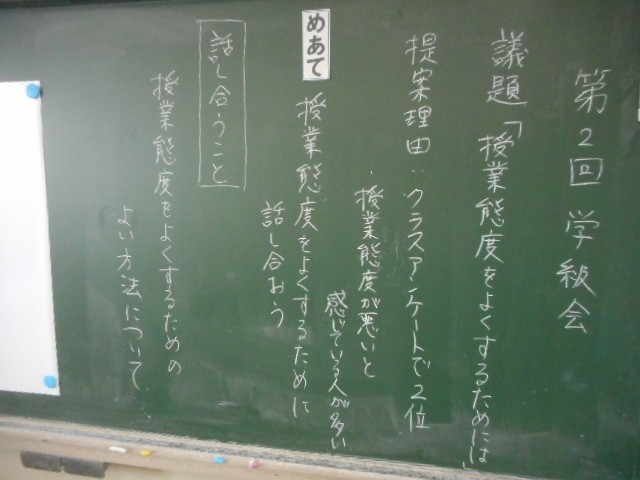 第2回 学級会
議題「授業態度をよくするためには」
提案理由:クラスアンケートで2位
・授業態度が悪いと
感じている人が多い
めあて
授業態度をよくするために
話し合おう
話し合うこと
授業態度をよくするための
よい方法について